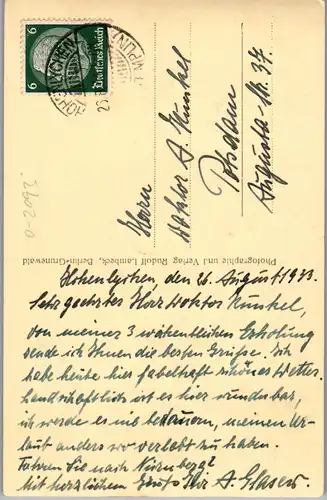 6 Deutsches Reich 6
HOHENLYCHEN
Herrn
Doktor A. Kunkel
Potsdam
Augusta-Str. 37.
Photographie und Verlag Rudolf Lambeck, Berlin-Grunewald
0-2093
Hohenlychen, den 26. August 1933.
Sehr geehrter Herr Doktor Kunkel,
von meiner 3 wöchentlichen Erholung
sende ich Ihnen die besten Grüsse. Ich
habe heute hier fabelhaft schönes Wetter.
Landschaftlich ist es hier wunderbar,
ich werde es nie bedauern, meinen Ur-
laub anders wo verlebt zu haben.
Fahren Sie nach Nürnberg?
Mit herzlichem Gruß Ihr A. Glaser.